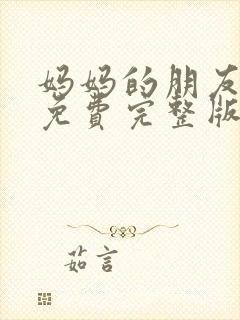 妈妈的朋友
免費完整版
茹言